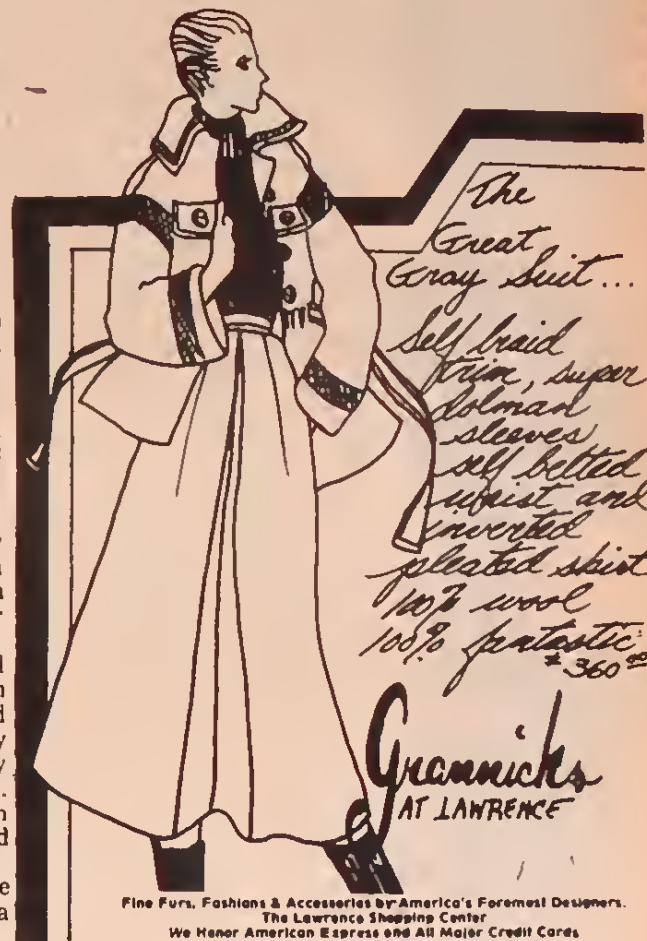 The
Great
Gray Suit...
Self braid
trim, super
dolman
sleeves
self belted
waist and
inverted
pleated skirt
100% wool
100% fantastic
$360.00
Grannicks
AT LAWRENCE
Fine Furs, Fashions & Accessories by America's Foremost Designers.
The Lawrence Shopping Center
We Honor American Express and All Major Credit Cards